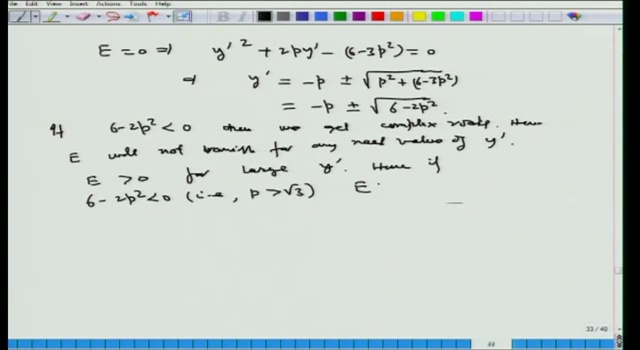 File Edit View Insert Actions Tools Help
E = 0 ⇒ y'² + 2py' - (6-3p²) = 0
⇒ y' = -p ± √p² + (6-3p²)
= -p ± √6-2p²
If 6-2p² < 0 then we get complex roots. Hence
E will not vanish for any real value of y'.
E > 0 for large y'. Hence if
6-2p² < 0 (i.e, p > √3) E
33 / 40
33